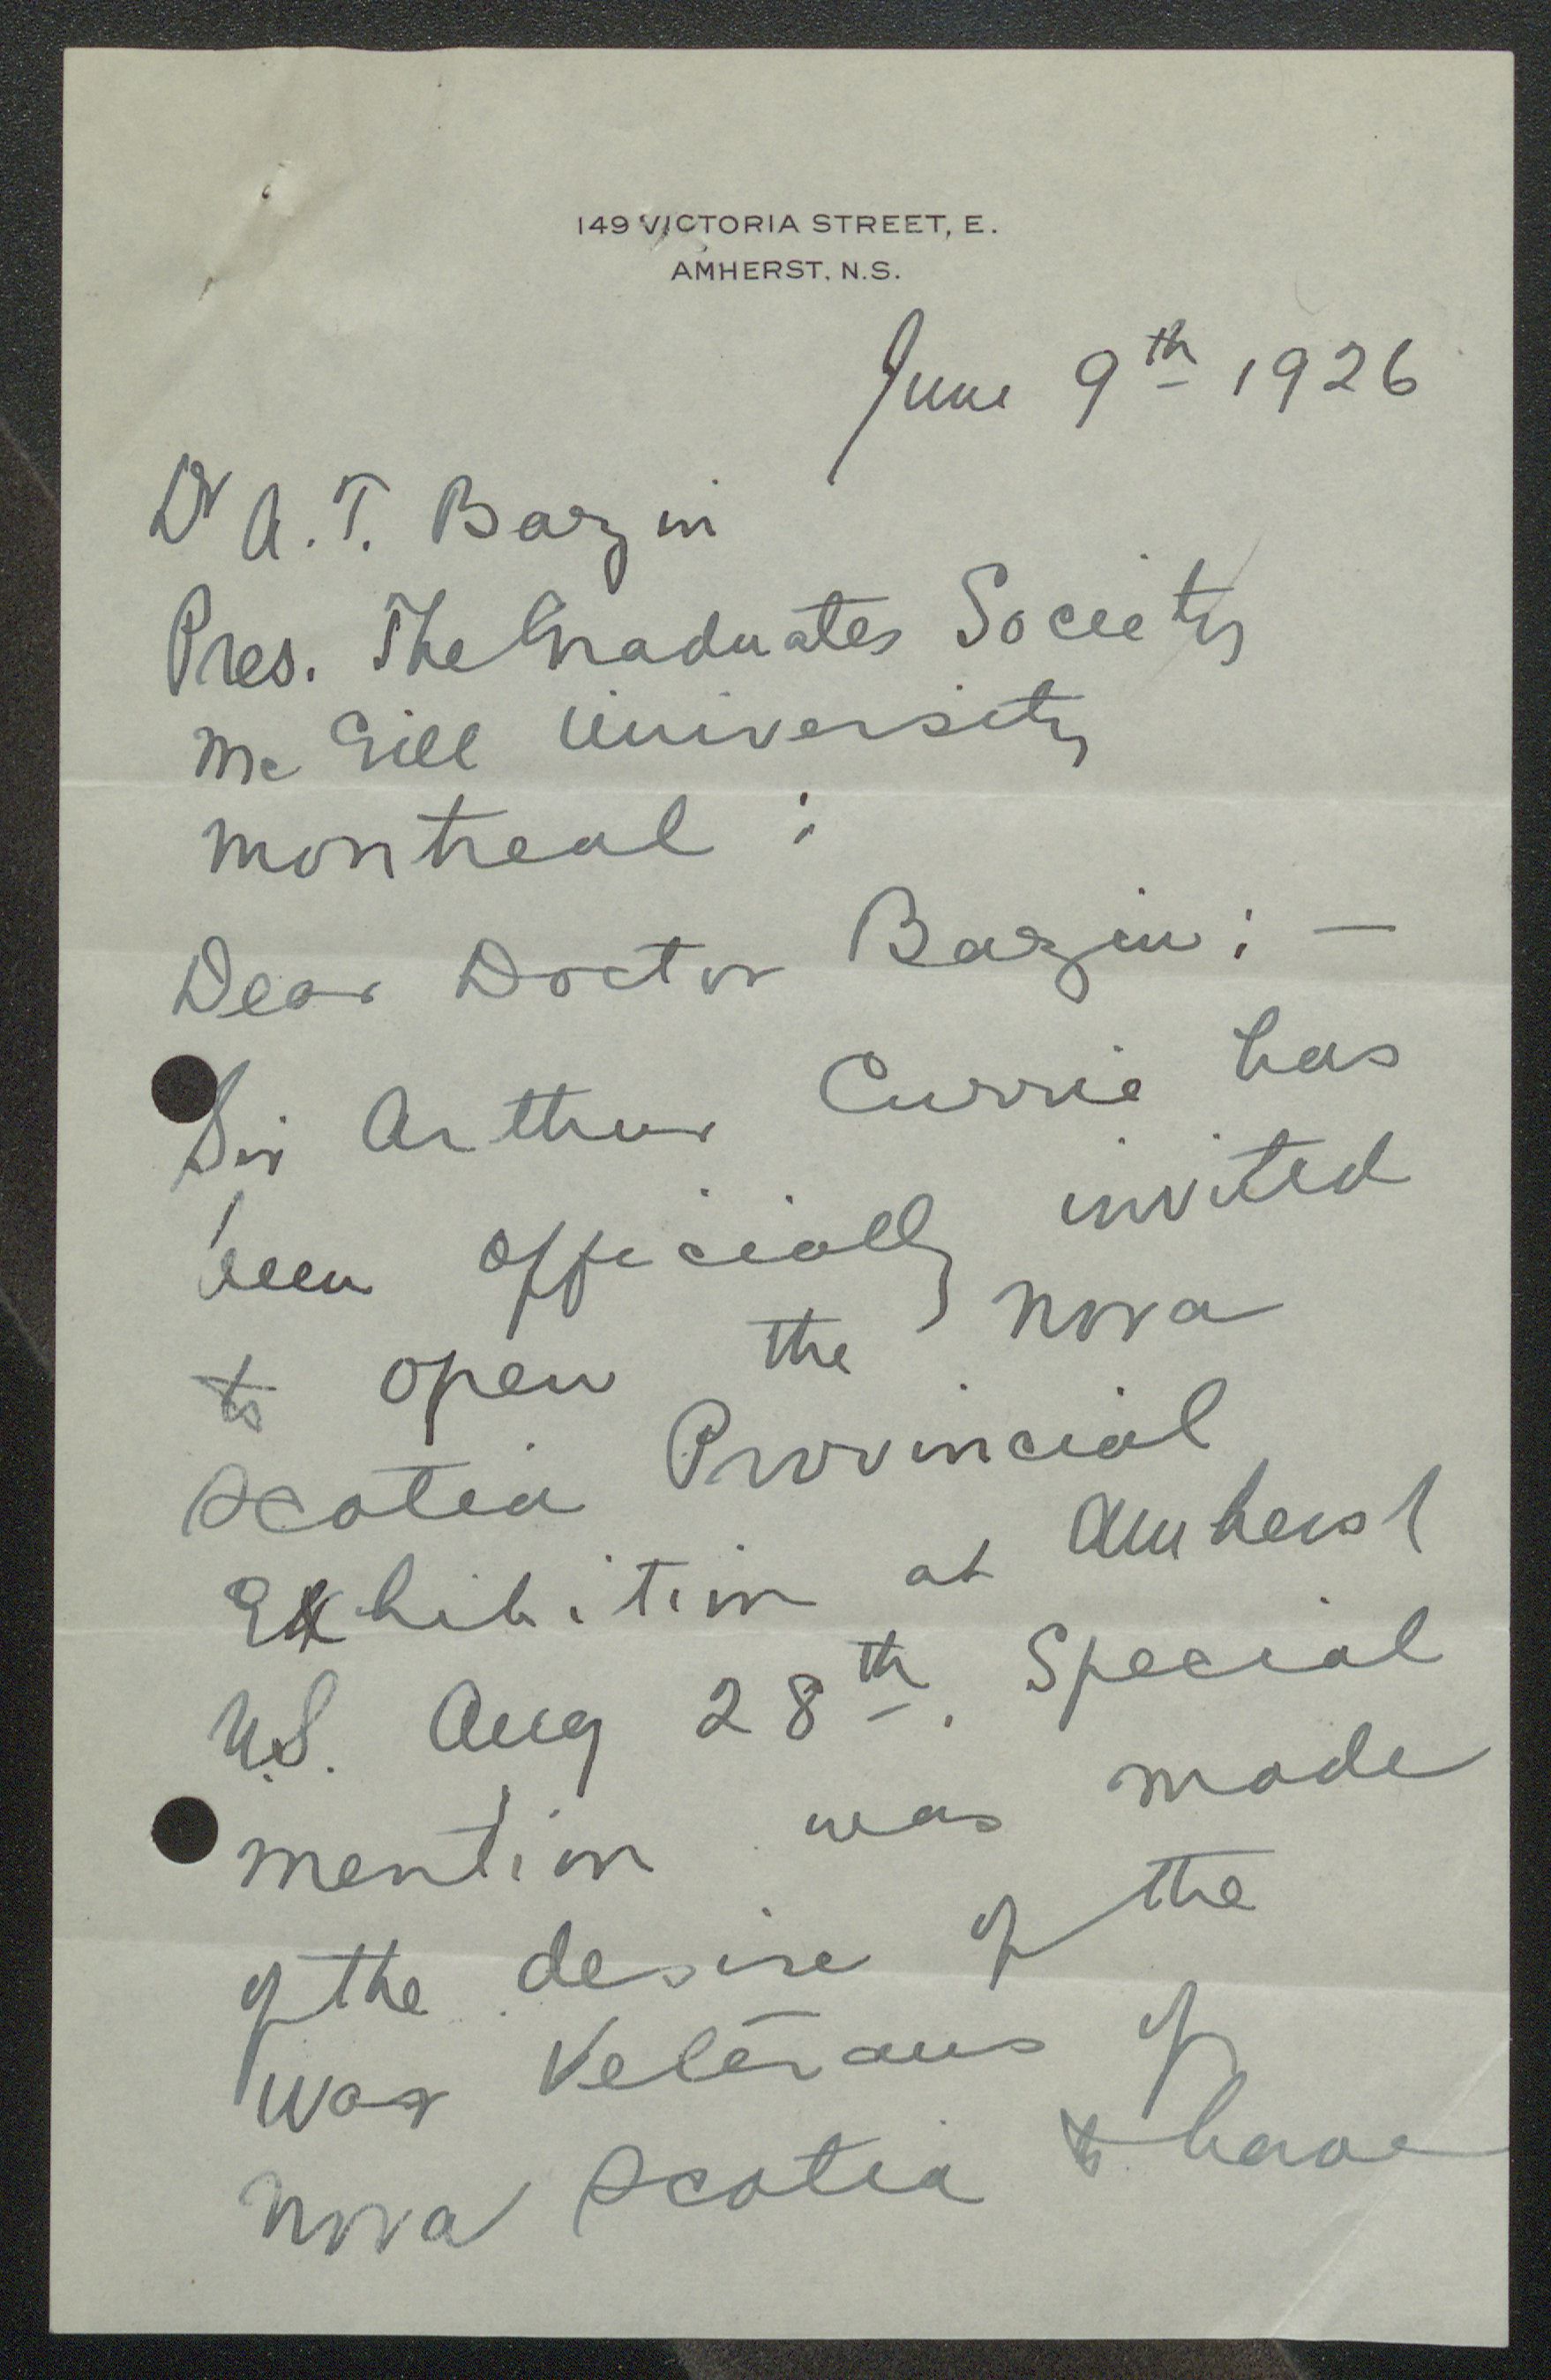 149 VICTORIA STREET, E.
AMHERST, N.S.
June 9th 1926
Dr A. T. Bazin
Pres. The Graduates Society
McGill University
Montreal :
Dear Doctor Bazin : —
Sir Arthur Currie has
been officially invited
to open the Nova
Scotia Provincial
Exhibition at Amherst
N.S. Aug 28th. Special
mention was made
of the desire of the
War Veterans of
Nova Scotia to have